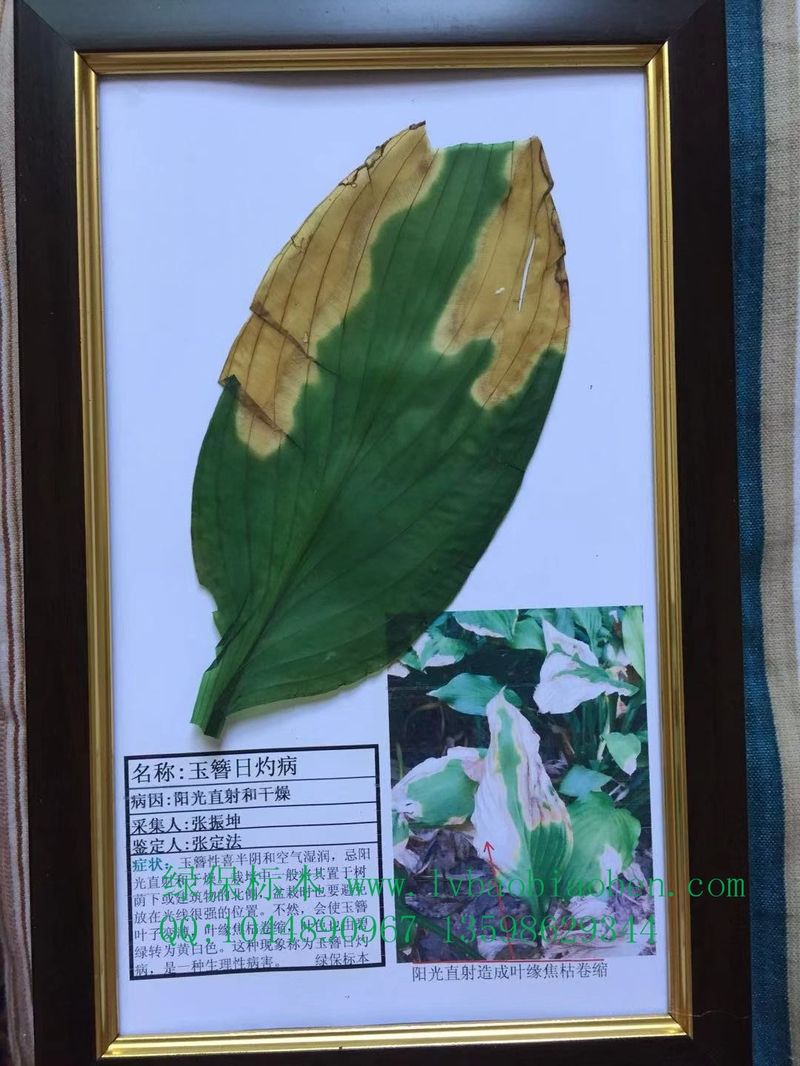 名称:玉簪日灼病
病因:阳光直射和干燥
采集人:张振坤
鉴定人:张定法
症状: 玉簪性喜半阴和空气湿润，忌阳
光直射和干燥。栽培时一般将其置于树
荫下或建筑物的北侧，盆栽时也要避免
放在光线很强的位置。不然，会使玉簪
叶子
叶缘焦枯卷缩，叶色也由
绿转为黄白色。这种现象称为玉簪日灼
病，是一种生理性病害。 绿保标本
绿保标本 www.lvbaobiaoben.com
QQ:1044890967 13598629344
阳光直射造成叶缘焦枯卷缩